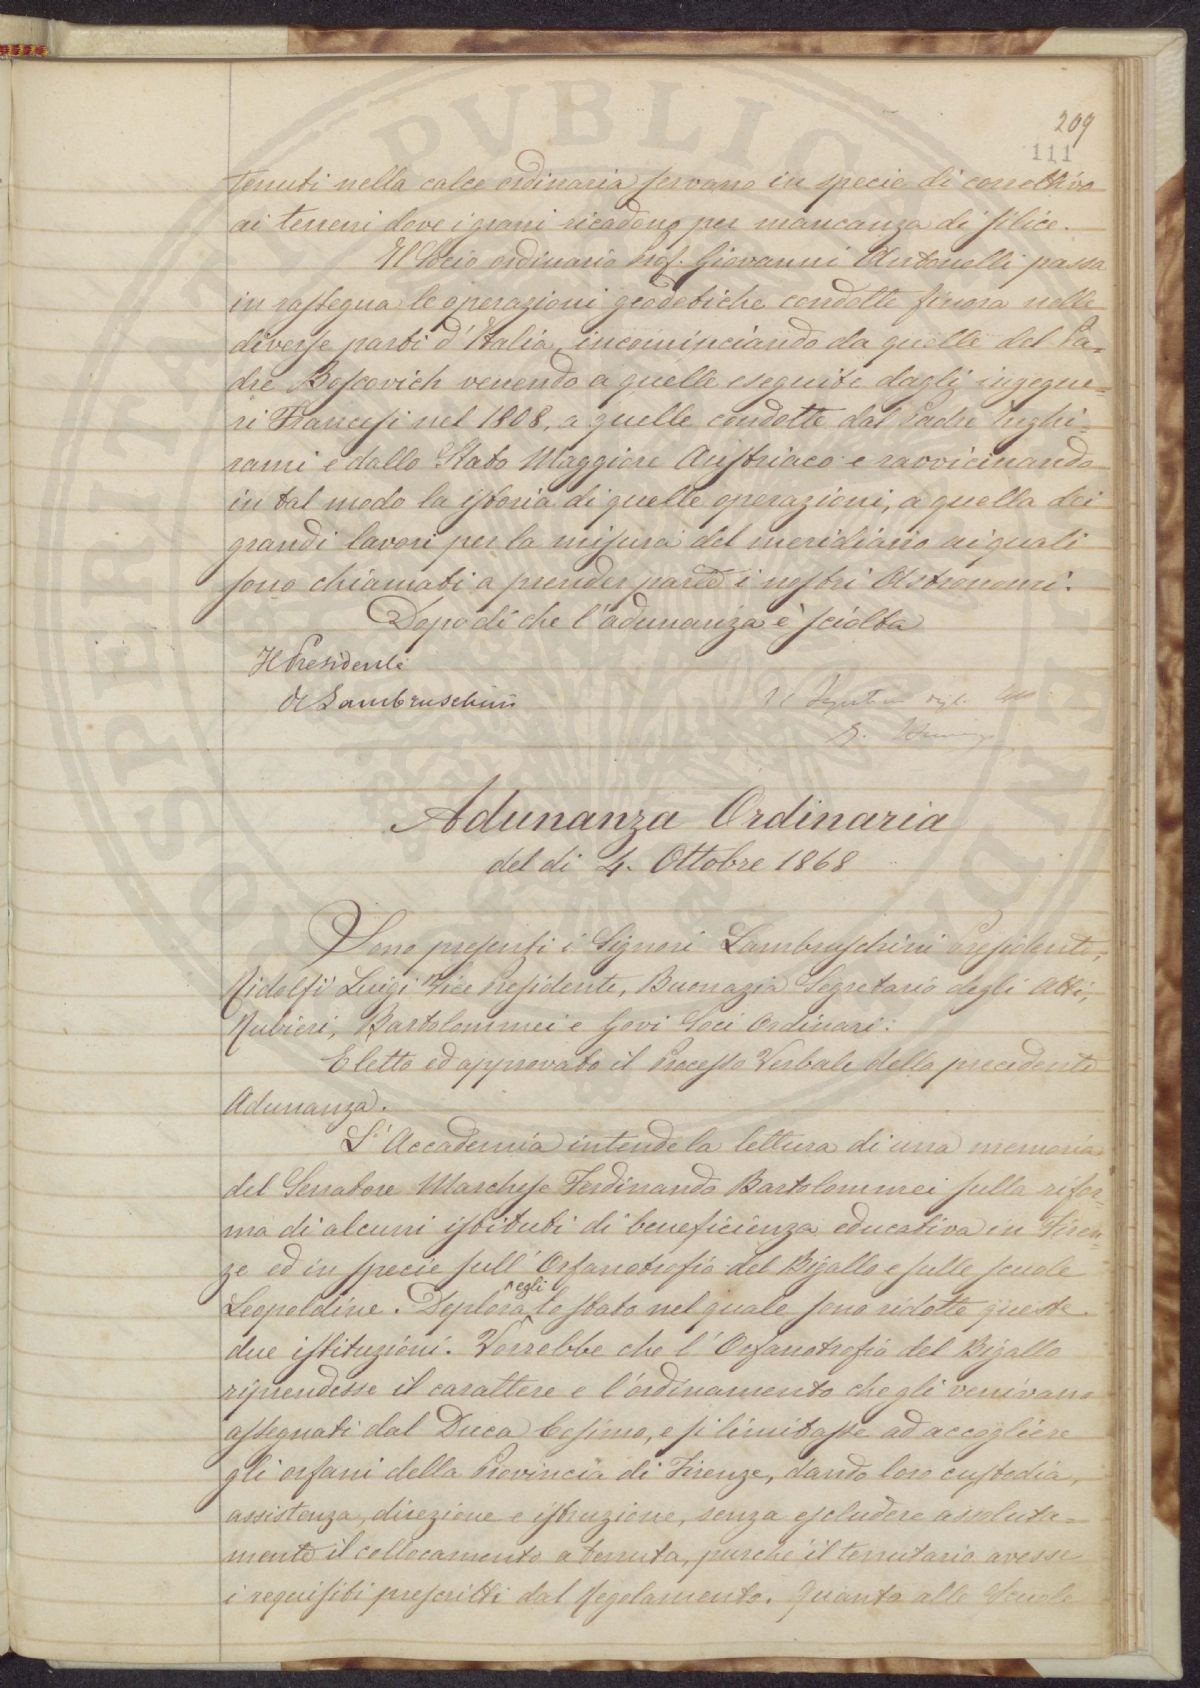 PROSPERITATI PVBLICAE
209
111
tenuti nella calce ordinaria servano in specie di correttivo
ai terreni dove i grani ricadono per mancanza di silice.
Il Socio ordinario Prof. Giovanni Antonelli passa
in rassegna le operazioni geodetiche condotte finora nelle
diverse parti d'Italia, incominciando da quelle del Pa=
dre Boscovich venendo a quelle eseguite dagli ingegne=
ri Francesi nel 1808, a quelle condotte dal Padre Inghi=
rami e dallo Stato Maggiore Austriaco e ravvicinando
in tal modo la istoria di quelle operazioni, a quella dei
grandi lavori per la misura del meridiano ai quali
sono chiamati a prender parte i nostri Astronomi.
Dopo di che l'adunanza è sciolta
Il Presidente
R Lambruschini
Il
Adunanza Ordinaria
del di 4. Ottobre 1868
Sono presenti i Signori Lambruschini Presidente,
Ridolfi Luigi Vice Presidente, Buonazia Segretario degli Atti,
Rubieri, Bartolommei e Govi Soci Ordinari:
E letto ed approvato il Processo Verbale della precedente
Adunanza.
L'Accademia intende la lettura di una memoria
del Senatore Marchese Ferdinando Bartolommei sulla rifor=
ma di alcuni istituti di beneficienza educativa in Firen=
ze ed in specie sull'Orfanotrofio del Bigallo e sulle scuole
Leopoldine. Deplora egli lo stato nel quale sono ridotte queste
due istituzioni. Vorrebbe che l'Orfanotrofio del Bigallo
riprendesse il carattere e l'ordinamento che gli venivano
assegnati dal Duca Cosimo, e si limitasse ad accogliere
gli orfani della Provincia di Firenze, dando loro custodia,
assistenza, direzione e istruzione, senza escludere assoluta=
mente il collocamento a tenuta, purchè il tenutario avesse
i requisiti prescritti dal Regolamento. Quanto alle Scuole